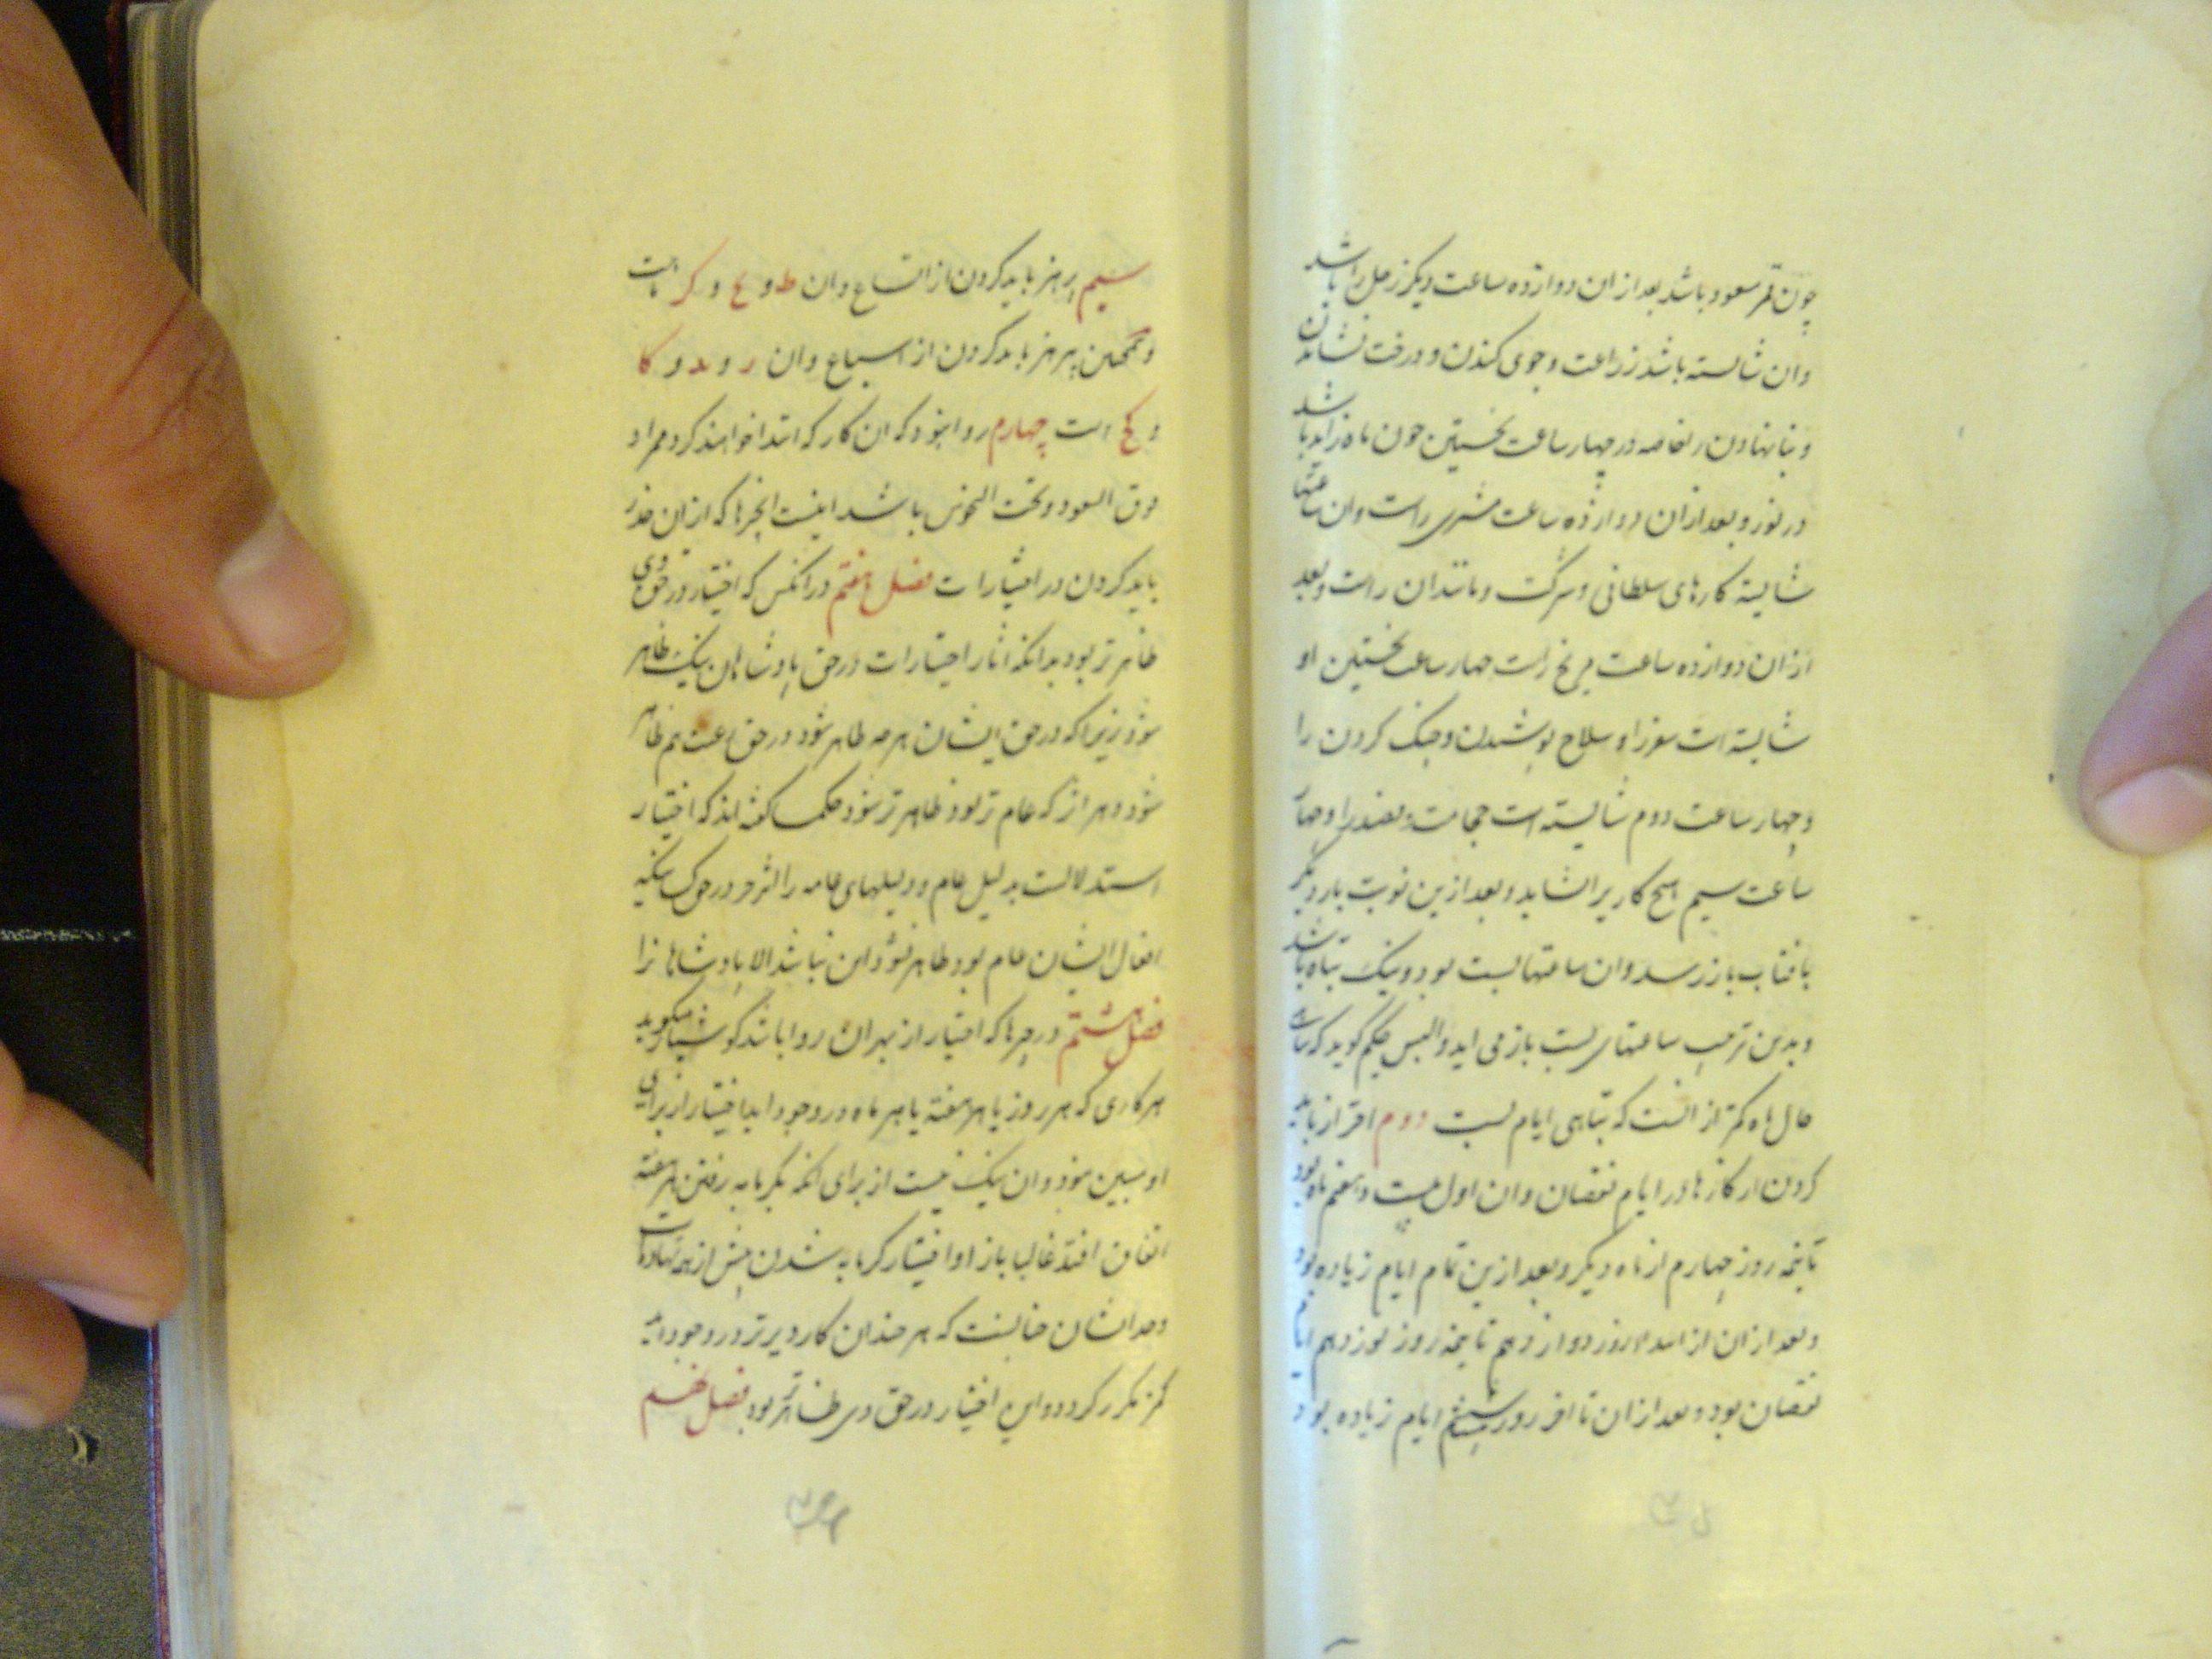 چون قمر مسعود باشد بعد ازان دوازده ساعت دیکر زحل را باشد
وان شایسته باشد زراعت و جوی کندن و درخت نشاندن
و بنا نهادن را خاصه در چهار ساعت نخستین چون ماه زاید باشد
در نور و بعد ازان دوازده ساعت مشتری راست وان ساعتها
شایسته کارهای سلطانی و شرکت و مانند ان راست و بعد
ازان دوازده ساعت مریخ راست چهار ساعت نخستین او
شایسته است سفر را و سلاح پوشیدن و جنک کردن را
و چهار ساعت دوم شایسته است حجامت و فصد را و چهار
ساعت سیم هیچ کاریرا نشاید و بعد ازین نوبت بار دیکر
بافتاب باز رسد وان ساعتها بست بود و نیک تباه باشد
و بدین ترتیب ساعتهای بست باز می اید و والیس حکیم کوید که تباهی
حال ماه کمتر از انست که تباهی ایام بست دوم احتراز باید
کردن از کارها در ایام نقصان وان اول بیست و هفتم ماه بود
تا نیمه روز چهارم از ماه دیکر و بعد ازین تمام ایام زیاده بود
و بعد ازان از ابتداء روز دوازدهم تا نیمه روز نوزدهم ایام
نقصان بود و بعد ازان تا اخر روز بیست ششم ایام زیاده بود
سیم پرهیز باید کردن از اتساع وان ط و ع و کر است
و همچنین پرهیز باید کردن از اسباع وان ر و ید و کا
و کح است چهارم روا بود که ان کار که ابتدا خواهند کرد مراد
فوق السعود و تحت النحوس باشد اینست انچیزها که ازان حذر
باید کردن در اختیارات فصل هفتم در انکس که اختیار در حق وی
ظاهر تر بود بدانکه اثار اختیارات در حق پادشاهان نیک ظاهر
شود زیرا که در حق ایشان هرچه ظاهر شود در حق رعیت هم ظاهر
شود و هر اثر که عام تر بود ظاهر تر شود حکما کفته اند که اختیار
استدلالست بدلیل عام و دلیلهای عامه را اثر جز در حق کسی که
افعال ایشان عام بود ظاهر نشود و این نباشد الا پادشاهانرا
فصل هشتم در چیزها که اختیار از بهر ان روا باشد کوشیار میکوید
هر کاری که هر روز یا هر هفته یا هر ماه در وجود اید اختیار از برای
او مبین شود وان نیک نیست از برای انکه بکرمابه رفتن هر هفته
اتفاق افتد غالبا باز او اختیار کرمابه شدن بیش از همه نهاده است
و جواب ایشان چنانست که هر چند ان کار دیرتر در وجود اید
کمتر مکرر کردد و این اختیار در حق وی ظاهرتر بود فصل نهم